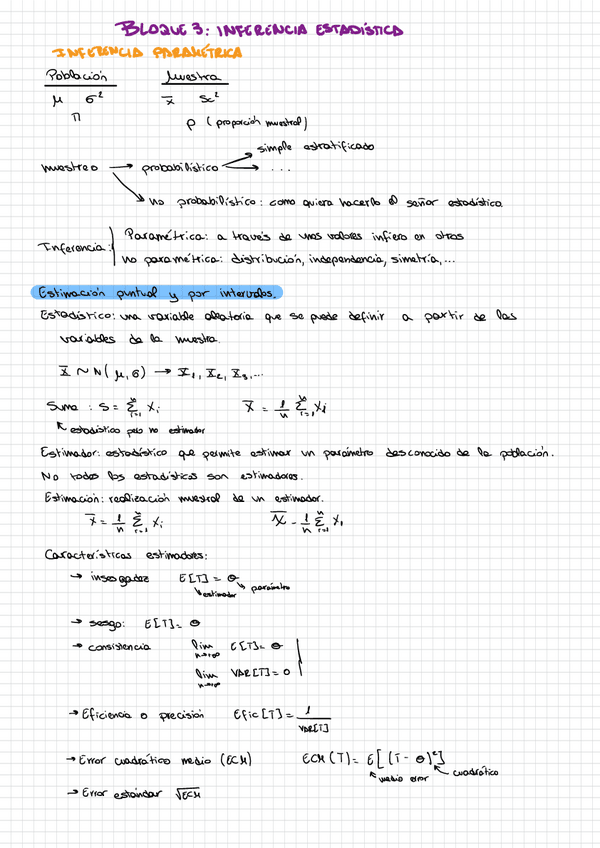 BLOQUE 3: INFERENCIA ESTADÍSTICA
INFERENCIA PARAMÉTRICA
Población Muestra
μ σ² x̄ Sc²
π
p (proporción muestral)
simple estratificado
muestreo → probabilístico → ...
no probabilístico: como quiera hacerlo el señor estadístico
Inferencia:
Paramétrica: a través de unos valores infiero en otros
no paramétrica: distribución, independencia, simetría, ...
Estimación puntual y por intervalos.
Estadístico: una variable aleatoria que se puede definir a partir de las
variables de la muestra.
X ~ N(μ, σ) → X₁, X₂, X₃, ...
Suma: S = Σⁿᵢ₌₁ Xᵢ X̄ = 1/n Σⁿᵢ₌₁ Xᵢ
estadístico pero no estimador
Estimador: estadístico que permite estimar un parámetro desconocido de la población.
No todos los estadísticos son estimadores.
Estimación: realización muestral de un estimador.
x̄ = 1/n Σⁿᵢ₌₁ xᵢ X̄ - 1/n Σⁿᵢ₌₁ Xᵢ
Características estimadores:
→ insesgadez E[T] = θ
estimador parámetro
→ sesgo: E[T] - θ
→ consistencia lim n→∞ E[T] = θ
lim n→∞ VAR[T] = 0
→ Eficiencia o precisión Efic[T] = 1/VAR[T]
→ Error cuadrático medio (ECM) ECM(T) = E[(T - θ)²]
medio error cuadrático
→ Error estándar √ECM